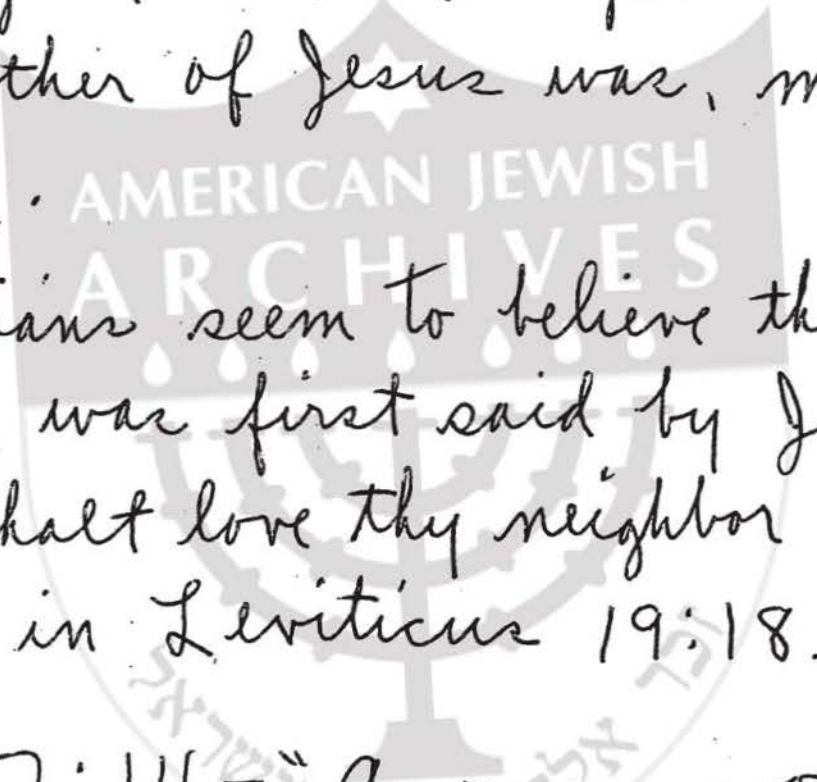 ther of Jesus was, m
AMERICAN JEWISH
ARCHIVES
ians seem to believe th
was first said by J
halt love thy neighbor
in Leviticus 19:18.